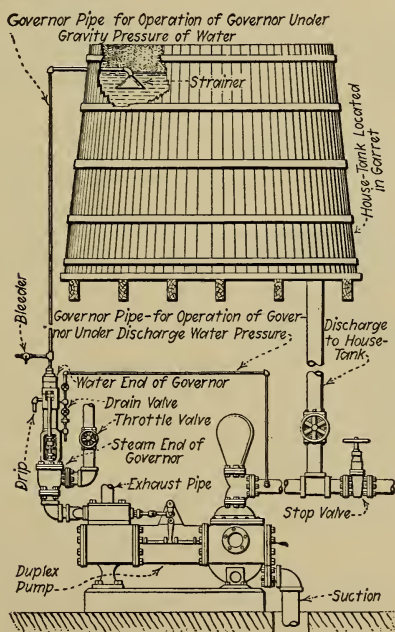 Governor Pipe for Operation of Governor Under
Gravity Pressure of Water
Strainer
House-Tank Located
in Garret
Governor Pipe-for Operation of Gover-
nor Under Discharge Water Pressure
Bleeder
Discharge
to House-
Tank
Water End of Governor
Drain Valve
Throttle Valve
Steam End of
Governor
Drip
Exhaust Pipe
Stop Valve
Duplex
Pump
Suction